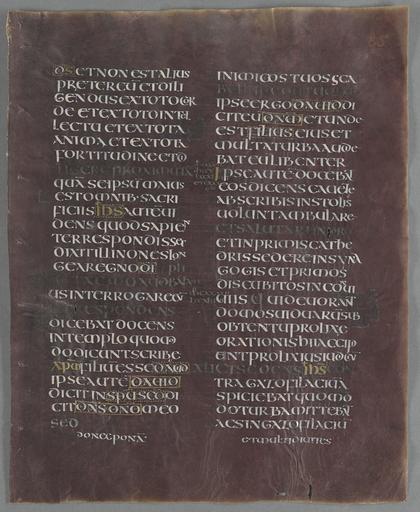 DS ET NON EST ALIUS
PRETER EU ET DILI
GENDUS EX TOTO COR
DE ET EX TOTO INTEL
LECTU ET EX TOTA
ANIMA ET EX TOTA
FORTITUDINE ET D
LIGERE PROXIMUM
QUASE IPSU MAIUS
EST OMNIB· SACRI
FICIIS IHS AUTE UI
DENS QUOD SAPIEN
TER RESPONDISSET
DIXIT ILLI NON ES LON
GE A REGNO DI
US INTERROGARE EU
RESPONDENS
DICEBAT DOCENS
IN TEMPLO QUOMO
DO DICUNT SCRIBE
XPM FILIU ESSE DAVID
IPSE AUTE DAVID
DICIT IN SPU SCO DI
CIT DNS DNO MEO
SED
donec ponam
INIMICOS TUOS SCA
IPSE ERGO DAVID DI
CIT EU DNM ET UNDE
EST FILIUS EIUS ET
MULTA TURBA AUDIE
BAT EU LIBENTER
IPSE AUTE DOCEBAT
EOS DICENS CAUETE
AB SCRIBIS IN STOLIS
UOLUNT AMBULARE
ET SALUTARI IN FORO
ET IN PRIMIS CATHE
DRIS SEDERE IN SYNA
GOGIS ET PRIMOS
DISCUBITOS IN CONUI
UIIS QUI DEUORANT
DOMOS UIDUARU SUB
OBTENTU PROLIXE
ORATIONIS HII ACCIPI
ENT PROLIXIUS IUDICIU
IHS
TRA GAZOFILACIU A
SPICIEBAT QUOMO
DO TURBA MITTEBAT
AES IN GAZOFILACIU
et multi diuites